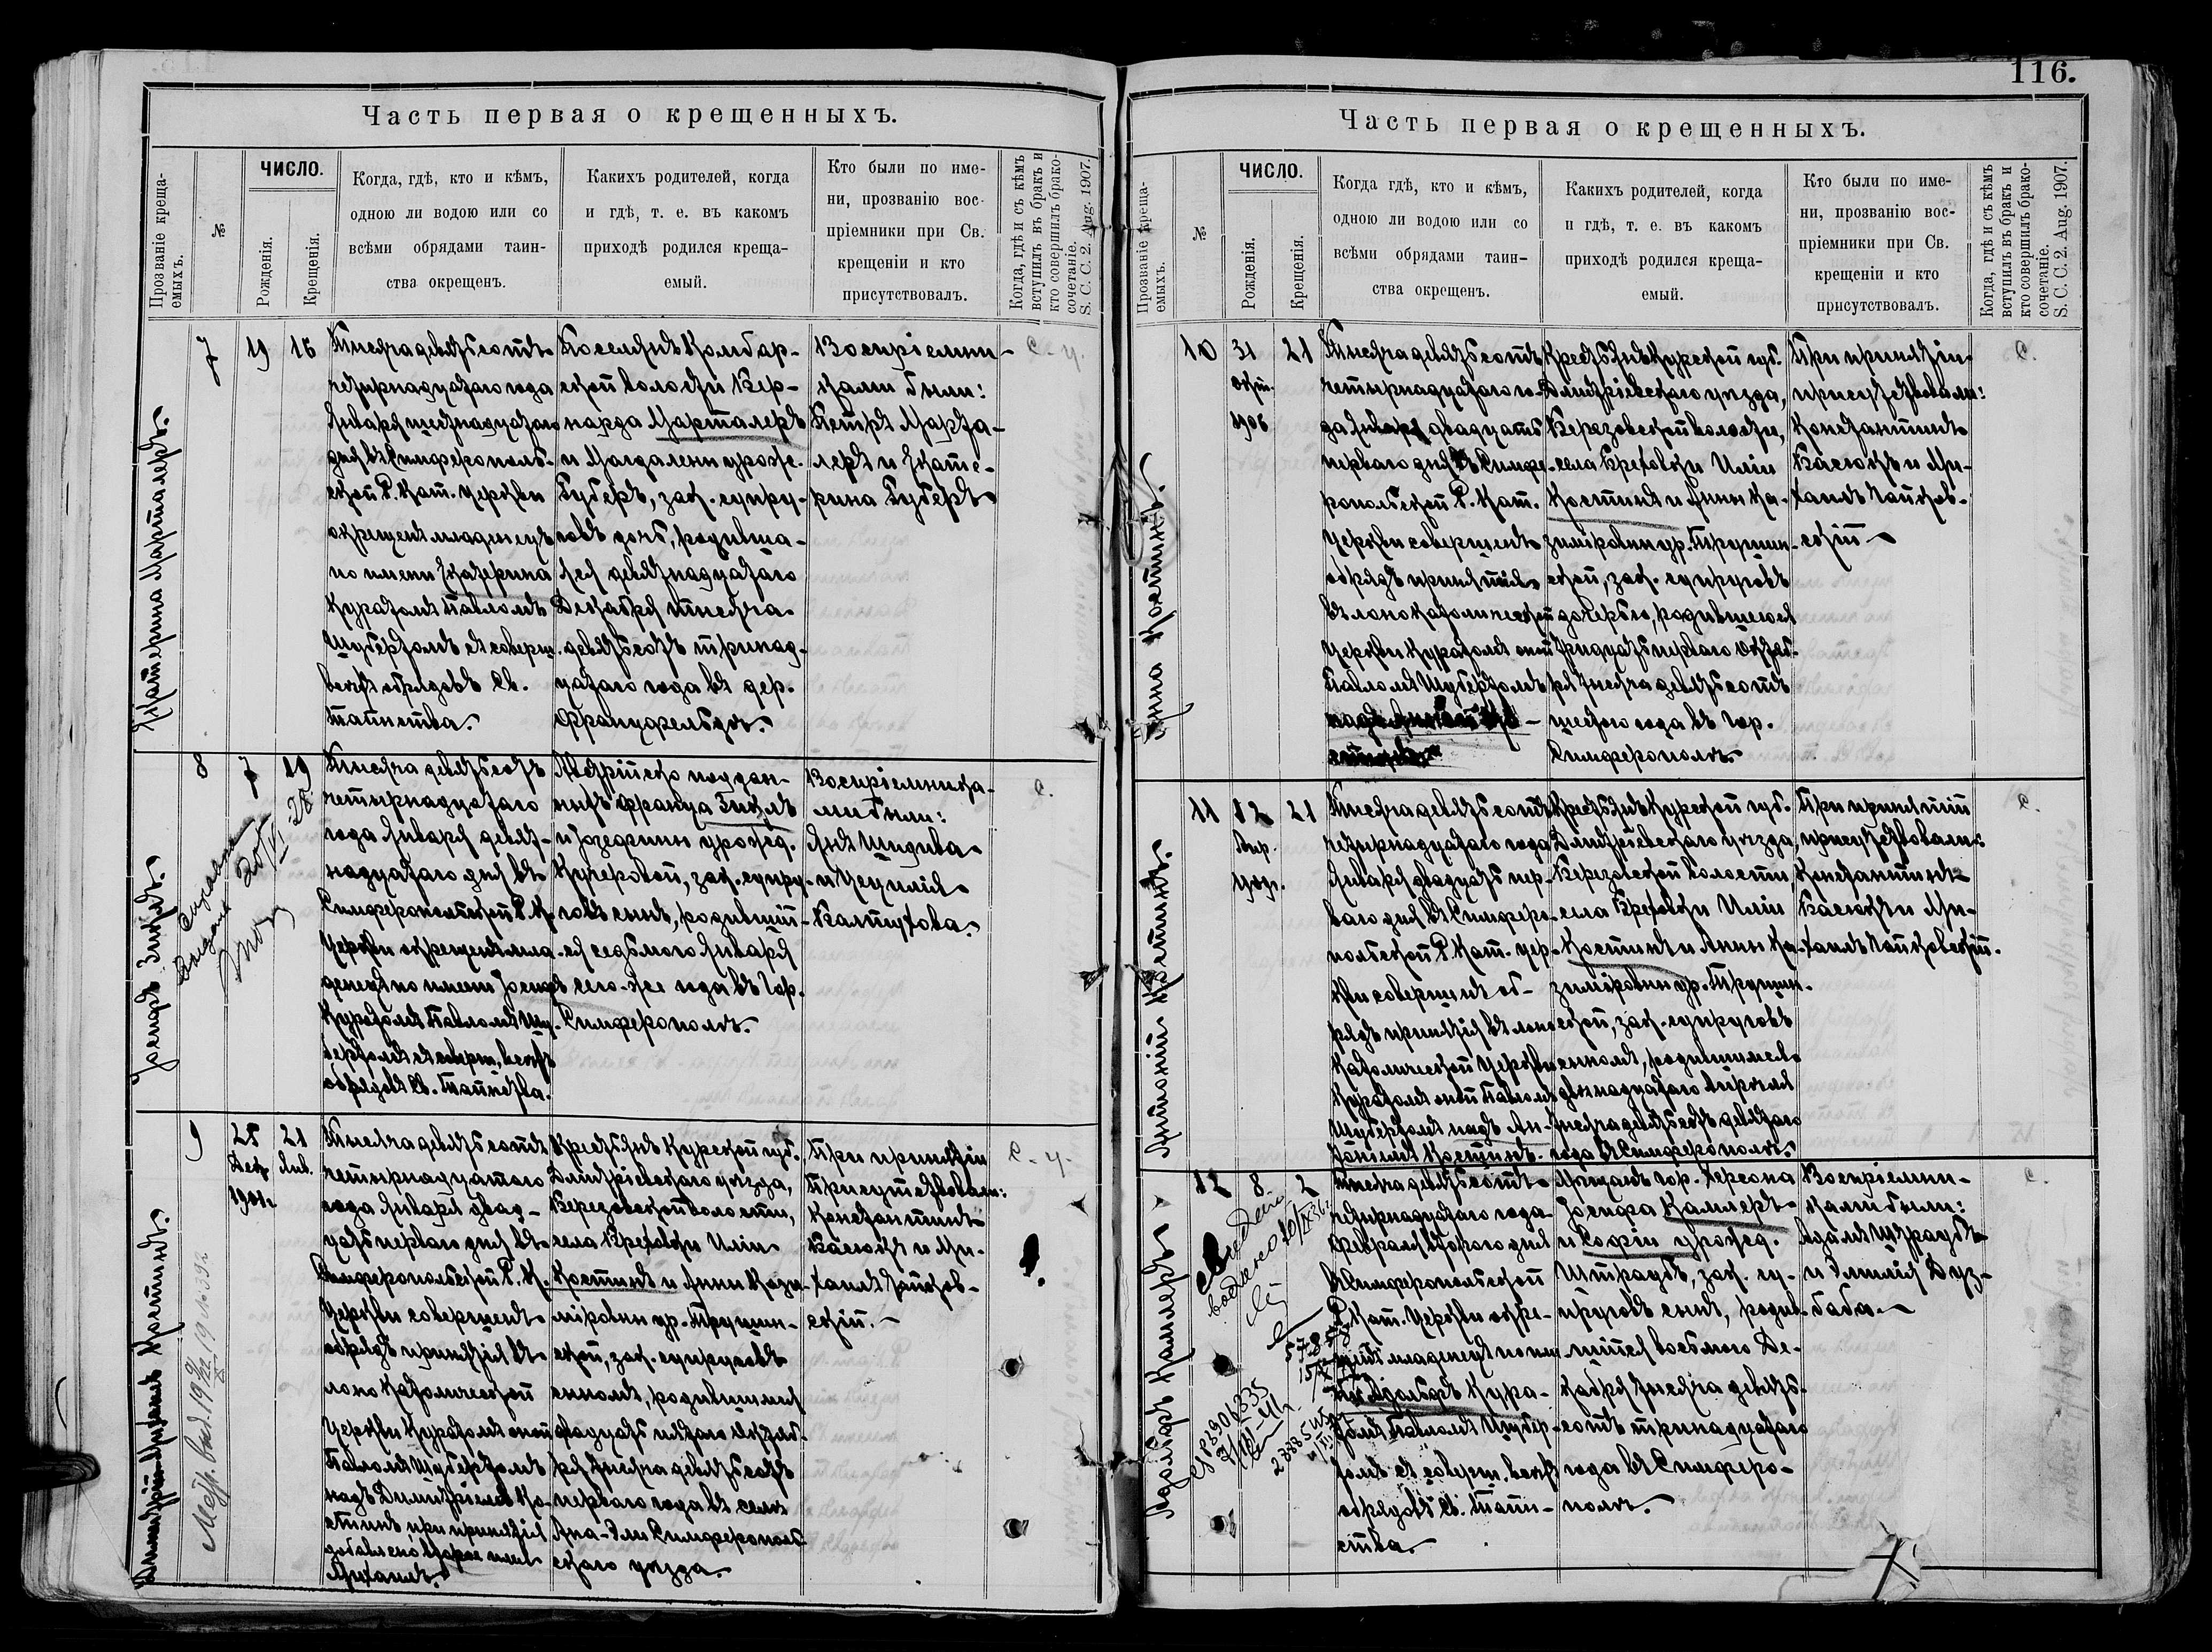 Часть первая о крещенныхъ.
Прозваніе креща-
емыхъ.
№
ЧИСЛО.
Рожденія.
Крещенія.
Когда, гдѣ, кто и кѣмъ,
одною ли водою или со
всѣми обрядами таин-
ства окрещенъ.
Какихъ родителей, когда
и гдѣ, т. е. въ какомъ
приходѣ родился креща-
емый.
Кто были по име-
ни, прозванію вос-
пріемники при Св.
крещеніи и кто
присутствовалъ.
Когда, гдѣ и съ кѣмъ
вступилъ въ бракъ и
кто совершилъ брако-
сочетаніе.
S. C. C. 2. Aug. 1907.
Екатерина Марталеръ.
7
19
16
Тысяча девятьсотъ
четырнадцатаго года
Января шестнадцатаго
дня въ Симферополь-
ской Р. Кат. церкви
окрещенъ младенецъ
по имени Екатерина
Куратомъ Павломъ
Шубертомъ съ соверш.
всѣхъ обрядовъ Св.
Таинства.
Поселянъ
ской волости Бер-
нарда Марталеръ
и Магдалены урожд.
Губеръ, зак. супру-
говъ дочь, родивша-
яся девятнадцатаго
Декабря тысяча
девятьсотъ тринад-
цатаго года въ дер.
Францфельдѣ.
Воспріемни-
ками были:
Петръ Марта-
леръ и Екате-
рина Губеръ
С. ч.
Іосифъ
8
7
19
Тысяча девятьсотъ
четырнадцатаго
года Января девят-
надцатаго дня въ
Симферопольской Р. К.
Церкви окрещенъ мла-
денецъ по имени Іосифъ
Куратомъ Павломъ Шу-
бертомъ съ соверш. всѣхъ
обрядовъ Св. Таинства.
Австрійско поддан-
ныхъ Франца
и Іозефины урожд.
Кучеровой, зак. супру-
говъ сынъ, родившій-
ся седьмого Января
сего-же года въ гор.
Симферополѣ.
Воспріемника-
ми были:
Янъ
и Цецилія
С.
Димитрій-Михаилъ Костинъ.
9
25
Дек.
1901
21
Янв.
Тысяча девятьсотъ
четырнадцатаго
года Января двад-
цать перваго дня въ
Симферопольской Р. К.
Церкви совершенъ
обрядъ принятія въ
лоно Католической
Церкви Куратомъ оной
Павломъ Шубертомъ
надъ Димитріемъ Ко-
стинъ при принятіи
добавлено второе имя
Михаилъ.
Крестьянъ Курской губ.
Дмитріевскаго уѣзда,
Березовской волости,
села Иліи
Костинъ и Анны Кази-
міровны ур.
ской, зак. супруговъ
сыномъ, родившимся
двадцать пятаго
тысяча девятьсотъ
перваго года въ селѣ
Ана-Эли Симферополь-
скаго уѣзда.
При принятіи
присутствовали:
Константинъ
Басюкъ и Ми-
хаилъ
скій.
С. ч.
116.
Часть первая о крещенныхъ.
Прозваніе креща-
емыхъ.
№
ЧИСЛО.
Рожденія.
Крещенія.
Когда гдѣ, кто и кѣмъ,
одною ли водою или со
всѣми обрядами таин-
ства окрещенъ.
Какихъ родителей, когда
и гдѣ, т. е. въ какомъ
приходѣ родился креща-
емый.
Кто были по име-
ни, прозванію вос-
пріемники при Св.
крещеніи и кто
присутствовалъ.
Когда, гдѣ и съ кѣмъ
вступилъ въ бракъ и
кто совершилъ брако-
сочетаніе.
S. C. C. 2. Aug. 1907.
Костинъ.
10
31
Окт.
1906
21
Тысяча девятьсотъ
четырнадцатаго го-
да Января двадцать
перваго дня въ Симфе-
ропольской Р. Кат.
Церкви совершенъ
обрядъ принятія
въ лоно Католической
Церкви Куратомъ оной
Павломъ Шубертомъ
Крестьянъ Курской губ.
Дмитріевскаго уѣзда,
Березовской волости,
села Иліи
Костинъ и Анны Ка-
зиміровны ур.
ской, зак. супруговъ
дочерью, родившеюся
тридцать перваго Октяб-
ря тысяча девятьсотъ
шестого года въ гор.
Симферополѣ.
При принятіи
присутствовали:
Константинъ
Басюкъ и Ми-
хаилъ
скій
С.
Антоній Костинъ.
11
12
Апр.
1909.
21
Тысяча девятьсотъ
четырнадцатаго года
Января двадцать пер-
ваго дня въ Симферо-
польской Р. Кат. цер-
кви совершенъ об-
рядъ принятія въ лоно
Католической Церкви
Куратомъ оной Павломъ
Шубертомъ надъ Ан-
тоніемъ Костинъ.
Крестьянъ Курской губ.
Дмитріевскаго уѣзда,
Березовской волости,
села Иліи
Костинъ и Анны Ка-
зиміровны ур.
ской, зак. супруговъ
сыномъ, родившимся
двѣнадцатаго Апрѣля
тысяча девятьсотъ девятаго
года въ Симферополѣ.
При принятіи
присутствовали:
Константинъ
Басюкъ и Ми-
хаилъ
С.
Адольфъ Каммеръ
12
8
2
Тысяча девятьсотъ
четырнадцатаго года
Февраля второго дня
въ Симферопольской
Р. Кат. Церкви окре-
щенъ младенецъ по име-
ни Адольфъ Кура-
томъ Павломъ Шубер-
томъ съ соверш. всѣхъ
обрядовъ Св. Таин-
ства.
Мѣщанъ гор. Херсона
Іосифа Каммеръ
и Софіи урожд.
Штраубъ, зак. су-
пруговъ сынъ, родив-
шійся восьмого Де-
кабря тысяча девять-
сотъ тринадцатаго
года въ Симферо-
полѣ.
Воспріемни-
ками были:
Адамъ Штраубъ
и Эмилія
С.